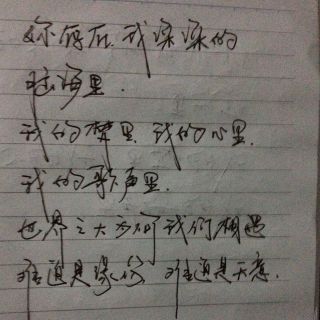 你存在我深深的
脑海里.
我的梦里.我的心里.
我的歌声里.
世界之大为何我们相遇
难道是缘份 难道是天意.